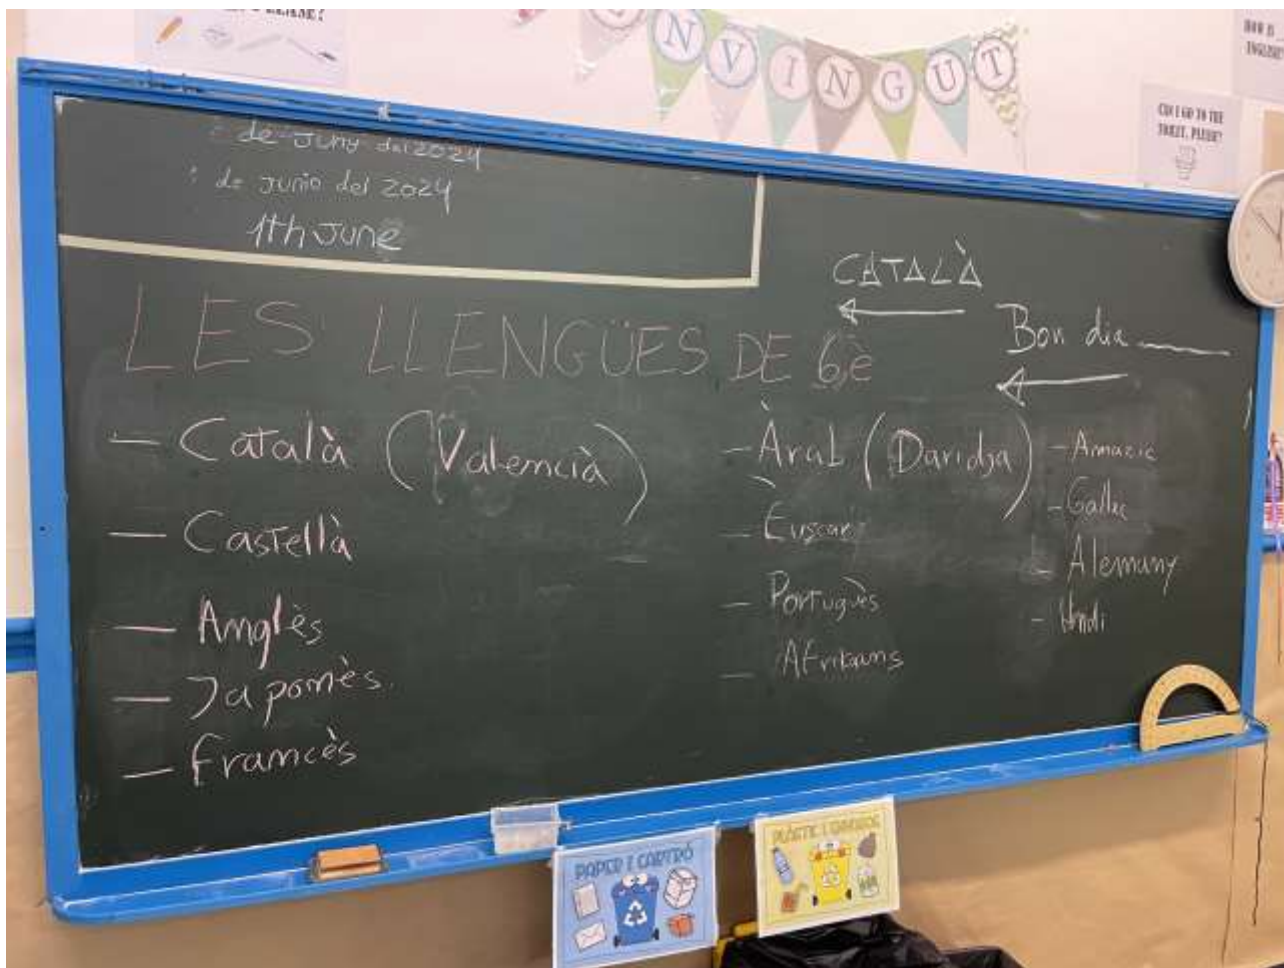 ENVINGUT
HOW IS
ENGLISH
CAN I GO TO THE
TOILET, PLEASE?
de Juny del 2024
de Junio del 2024
1th June
CATALÀ
Bon dia
LES LLENGÜES DE 6è
- Català (Valencià)
- Castellà
- Anglès
- Japonès
- Francès
- Àrab (Daridja)
- Euscar
- Portuguès
- Afrikaans
- Amazic
- Gallec
- Alemany
- Hindi
PAPER I CARTRÓ
PLÀSTIC I ENVASOS